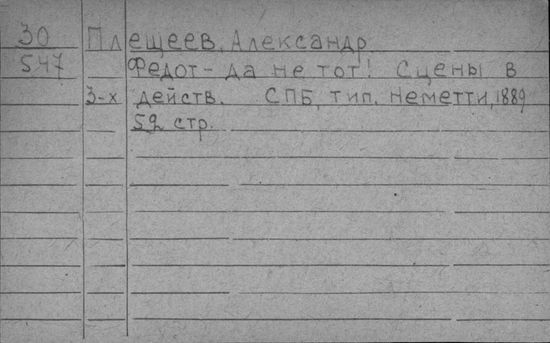 30 Плещеев, Александр
547 Федот - да не тот! Сцены в
3-х действ. СПБ, тип. Неметти, 1889
52 стр.